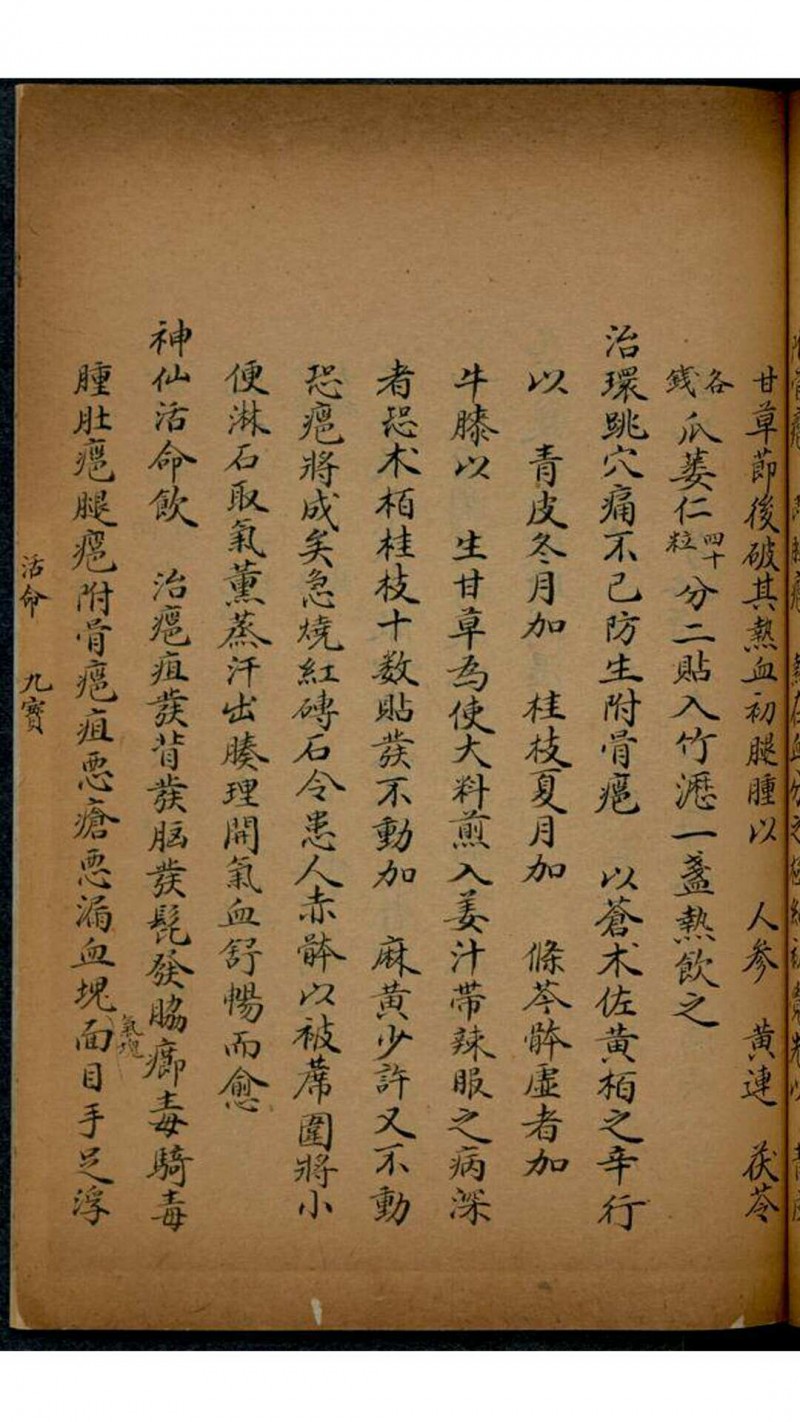 甘草節後破其熱血初腿腫以　人參　黃連　茯苓
各錢瓜蔞仁四十粒分二貼入竹瀝一盞熱飲之
治環跳穴痛不已防生附骨癰　以蒼术佐黃栢之辛行
以　青皮冬月加　桂枝夏月加　條芩骵虛者加
牛膝以　生甘草爲使大料煎入姜汁带辣服之病深
者恐术栢桂枝十数貼發不動加　麻黃少許又不動
恐癰將成矣急燒紅磚石令患人赤骵以被蓆圍將小
便淋石取氣薰蒸汗出腠理開氣血舒暢而愈
神仙活命飲　治癰疽發背發腦發髭發脇癤毒騎毒
腫肚癰腿癰附骨癰疽惡瘡惡漏血塊氣塊面目手足浮
活命　九寶